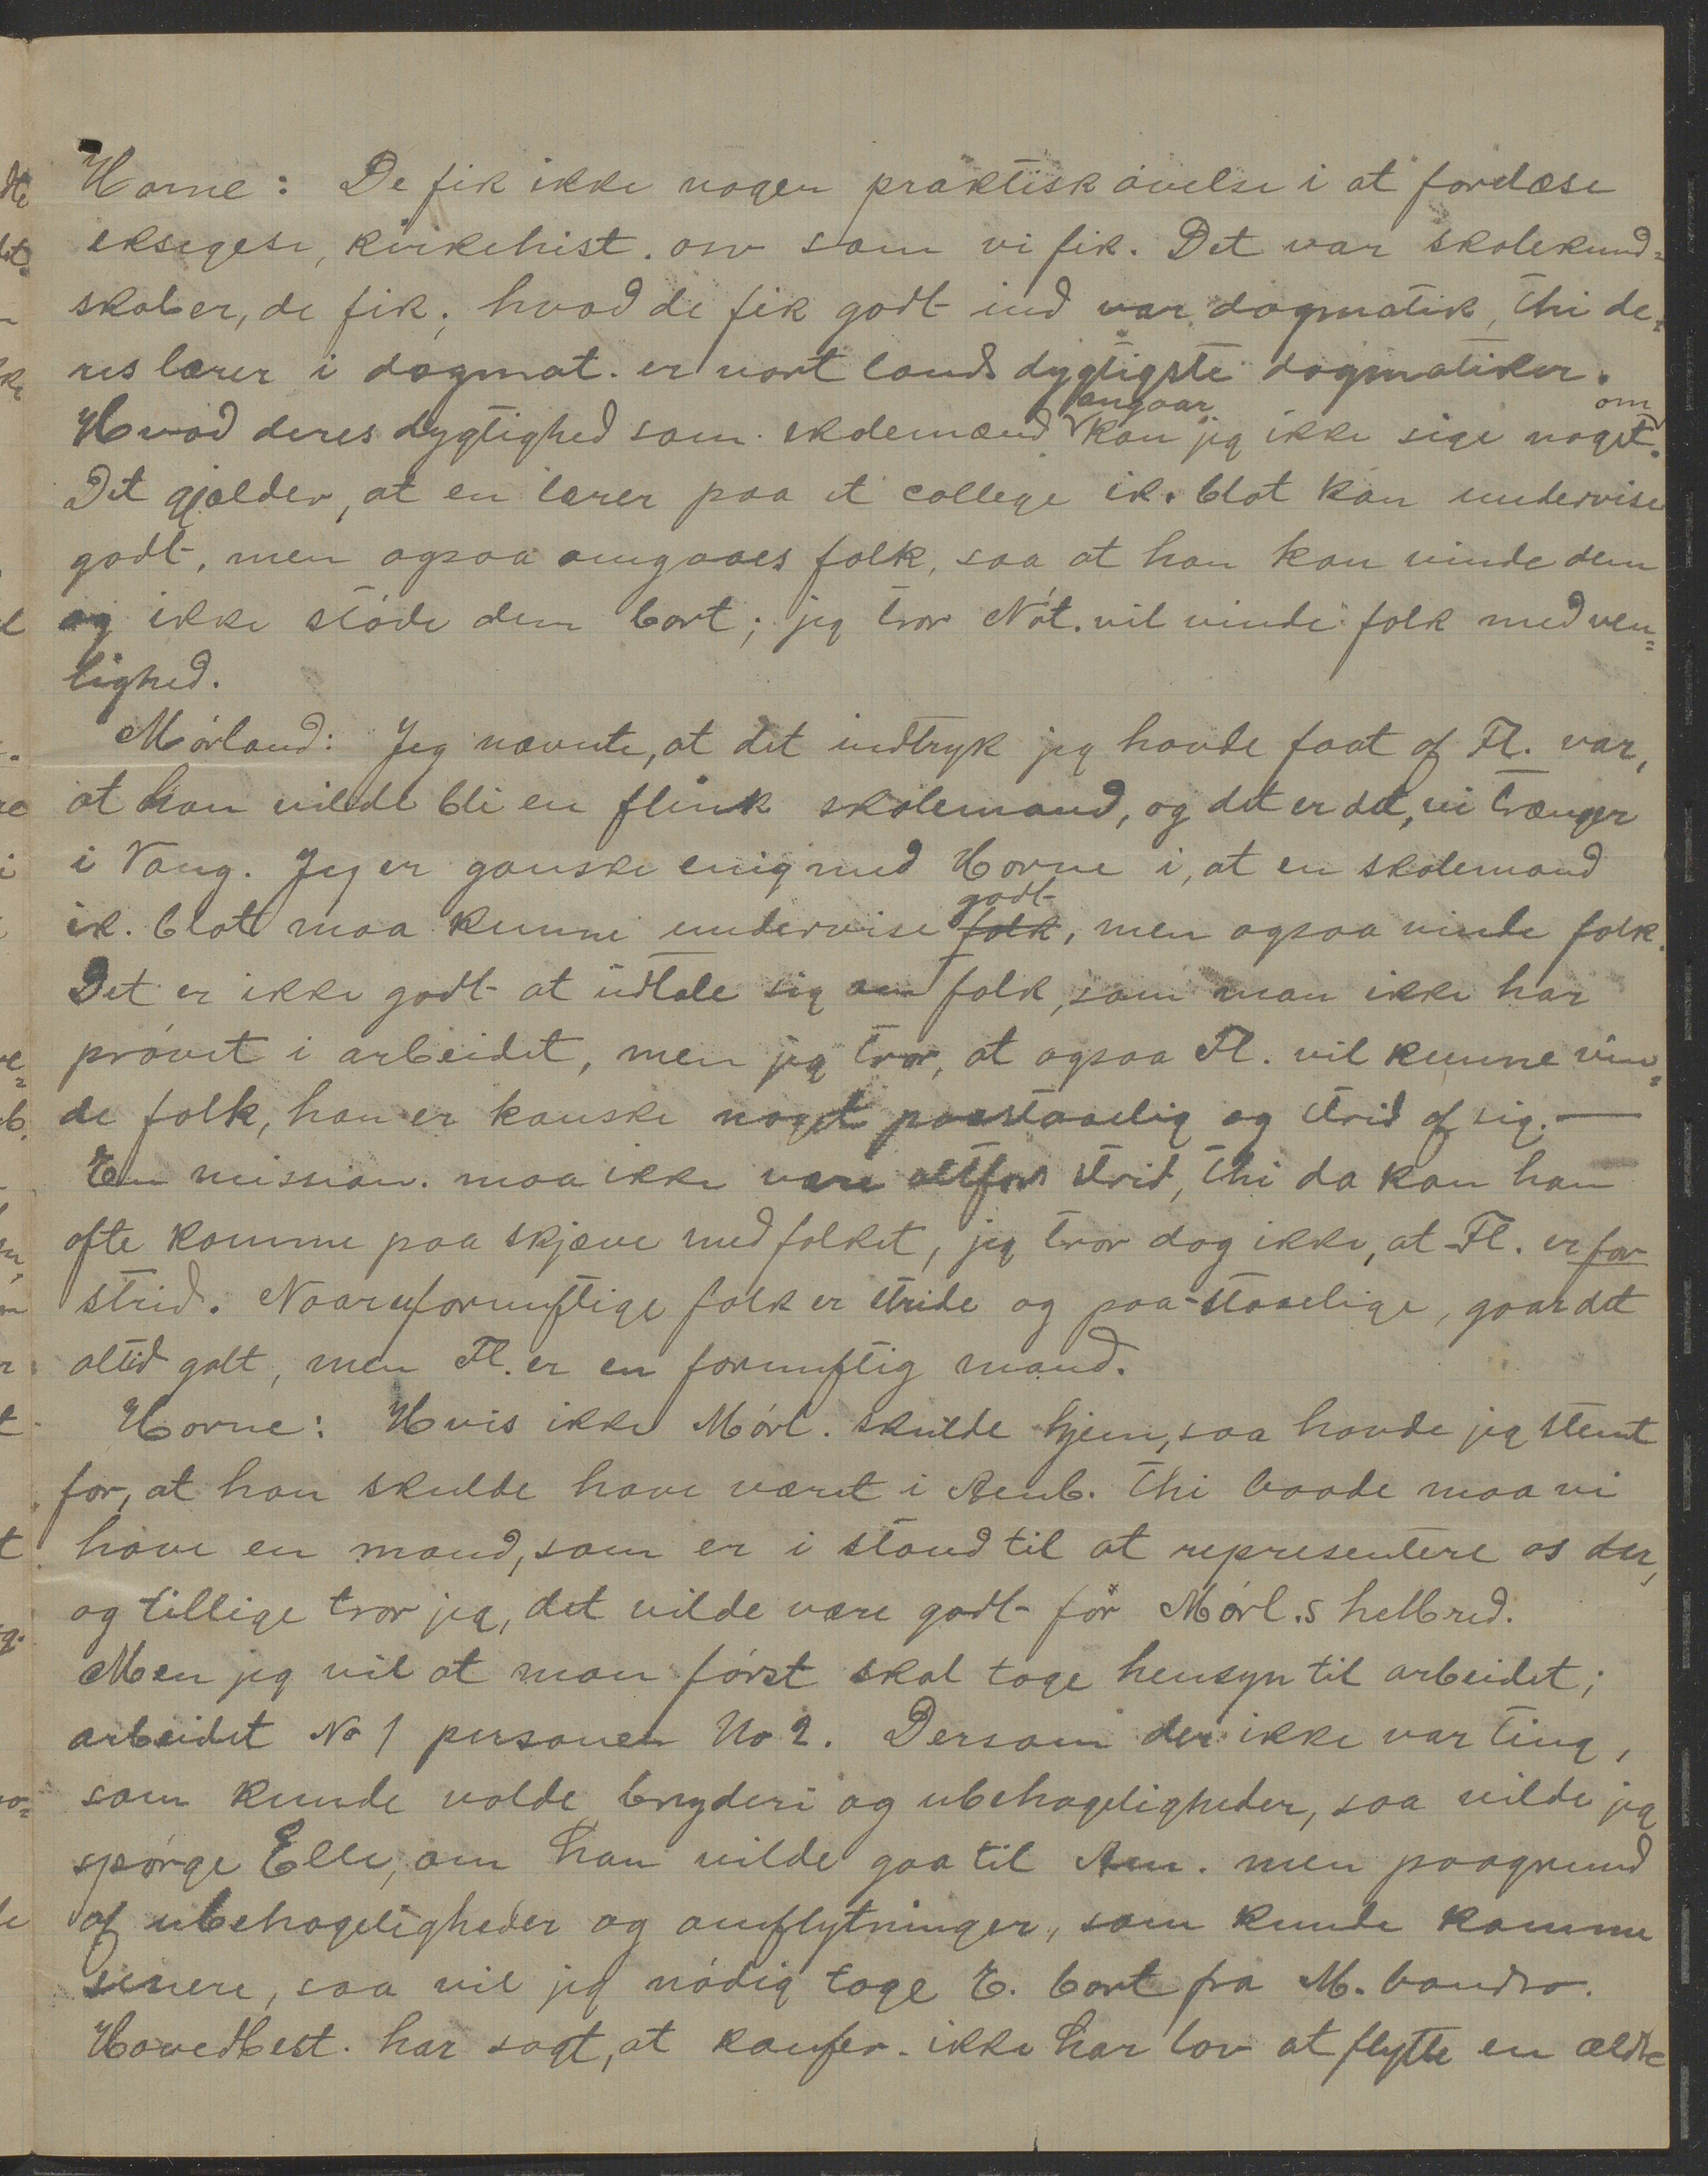 Horne: De fik ikke nogen praktisk øvelse i at forelæse
eksegese, kirkehist. osv som vi fik. Det var skolekund=
skaber, de fik; hvad de fik godt ind var dogmatik, thi de=
res lærer i dogmat. er vort lands dygtigste dogmatiker.
Hvad deres dygtighed som skolemænd angaar kan jeg ikke sige noget om.
Det gjælder, at en lærer paa et college ik. blot kan undervise
godt, men ogsaa omgaaes folk, saa at han kan vinde dem
og ikke støde dem bort; jeg tror Nøt. vil vinde folk med ven=
lighed.
Mørland: Jeg nævnte, at det indtryk jeg havde faat af Fl. var,
at han vilde bli en flink skolemand, og det er det, vi trænger
i Vang. Jeg er ganske enig med Horne i, at en skolemand
ik. blott maa kunne undervise folk godt, men ogsaa vinde folk.
Det er ikke godt at udtale sig om folk, som man ikke har
prøvet i arbeidet, men jeg tror, at ogsaa Fl. vil kunne vin=
de folk, han er kanske noget paastaaelig og strid af sig. —
En mission. maa ikke være altfor strid, thi da kan han
ofte komme paa skjæve med folket, jeg tror dog ikke, at Fl. er for
strid. Naar ufornuftige folk er stride og paa-staaelige, gaar det
altid galt, men Fl. er en fornuftig mand.
Horne: Hvis ikke Mørl. skulde hjem, saa havde jeg stemt
for, at han skulde have været i Amb. thi baade maa vi
have en mand, som er i stand til at representere os der,
og tillige tror jeg, det vilde være godt for Mørl.s helbred.
Men jeg vil at man først skal tage hensyn til arbeidet;
arbeidet No 1 personen No 2. Dersom der ikke var ting,
som kunde volde bryderi og ubehageligheder, saa vilde jeg
spørge Elle, om han vilde gaa til Am. men paagrund
af ubehageligheder og omflytninger, som kunde komme
senere, saa vil jeg nødig tage E. bort fra M. bandro.
Hovedbest. har sagt, at konfer. ikke har lov at flytte en ældre